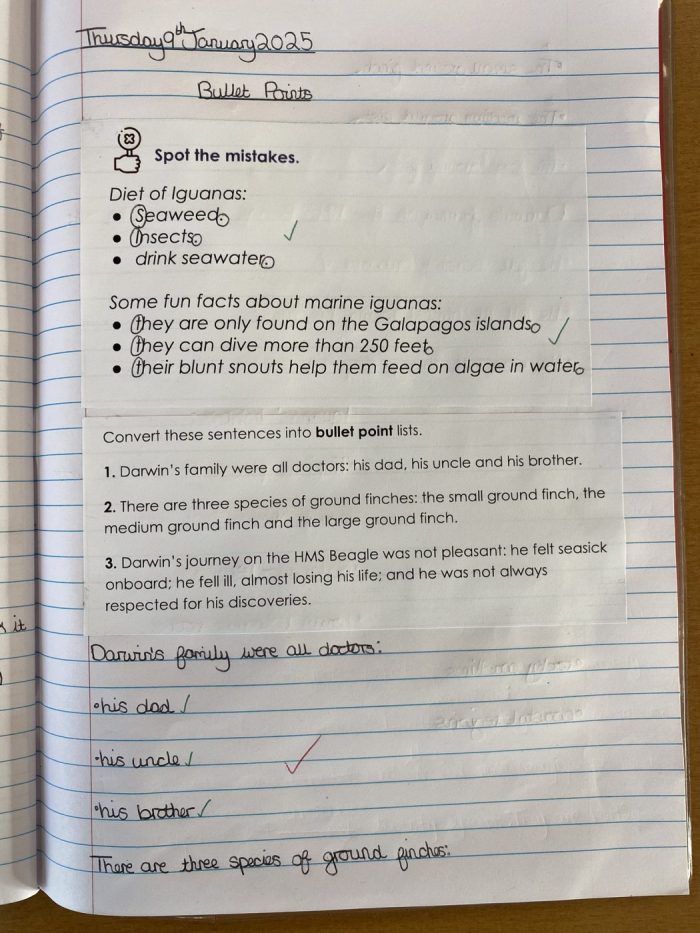 Thursday 9th January 2025
Bullet Points
Spot the mistakes.
Diet of Iguanas:
• Seaweed
• Insects
• drink seawater
Some fun facts about marine iguanas:
• they are only found on the Galapagos islands
• they can dive more than 250 feet
• their blunt snouts help them feed on algae in water
Convert these sentences into bullet point lists.
1. Darwin's family were all doctors: his dad, his uncle and his brother.
2. There are three species of ground finches: the small ground finch, the
medium ground finch and the large ground finch.
3. Darwin's journey on the HMS Beagle was not pleasant: he felt seasick
onboard; he fell ill, almost losing his life; and he was not always
respected for his discoveries.
it
Darwin's family were all doctors:
•his dad
•his uncle
•his brother
There are three species of ground finches: